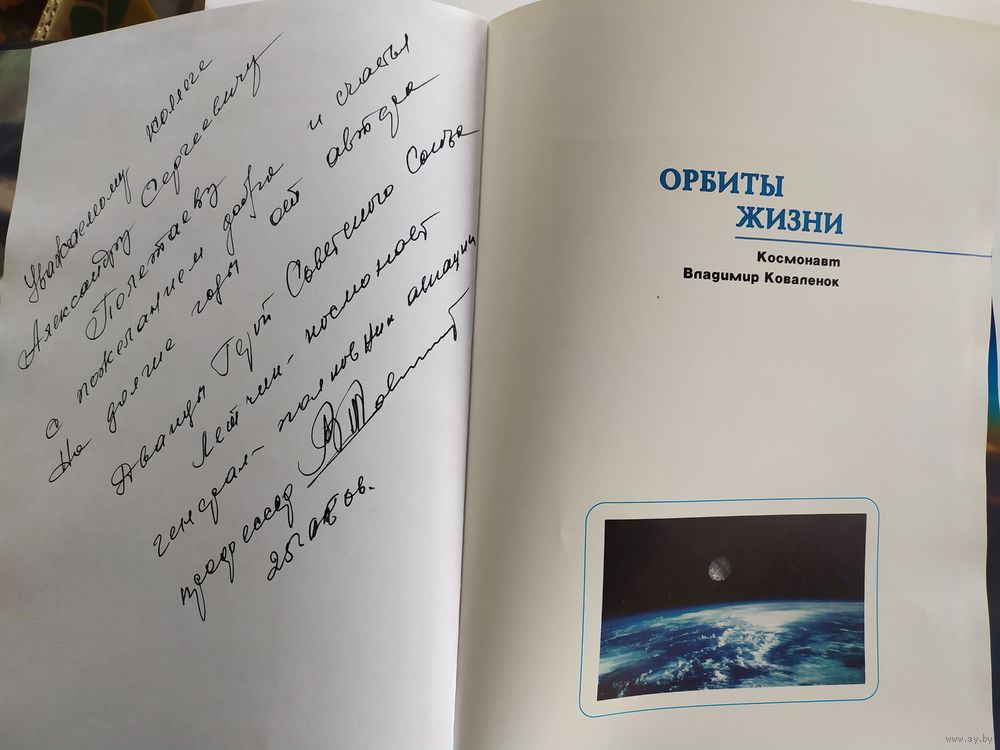 Уважаемому коллеге
Александру Сергеевичу
Полетаеву
с пожеланием добра и счастья
На долгие годы от автора
Дважды Герой Советского Союза
Летчик-космонавт
генерал-полковник авиации
профессор
ОРБИТЫ
ЖИЗНИ
Космонавт
Владимир Коваленок
www.ay.by